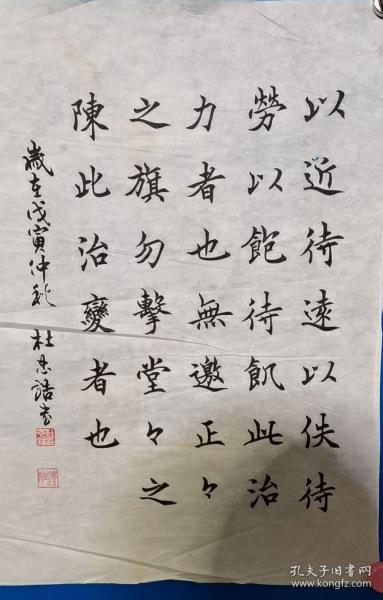 以近待遠以佚待
勞以飽待飢此治
力者也無邀正々
之旗勿擊堂々之
陳此治變者也
歲在戊寅仲秋 杜忠誥書
孔夫子旧书网
www.kongfz.com